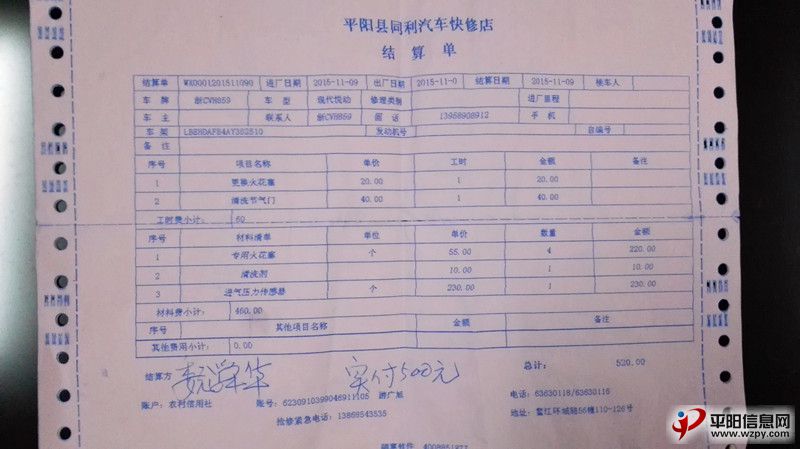 平阳县同利汽车快修店
结算单
结算单 WX00012015111090 进厂日期 2015-11-09 出厂日期 2015-11-0 结算日期 2015-11-09 接车人
车牌 浙CVH859 车型 现代悦动 修理类别 进厂里程
车主 联系人 浙CVH859 电话 13958908912 手机
车架 LBEHDAFB4AY382510 发动机号 自编号
备注
序号 项目名称 单价 工时 金额 备注
1 更换火花塞 20.00 1 20.00
2 清洗节气门 40.00 1 40.00
工时费小计: 60
序号 材料清单 单位 单价 数量 金额
1 专用火花塞 个 55.00 4 220.00
2 清洗剂 10.00 1 10.00
3 进气压力传感器 个 230.00 1 230.00
材料费小计: 460.00
序号 其他项目名称 金额 备注
其他费用小计: 0.00
结算方 实付500元 总计: 520.00
账户: 农村信用社 账号: 6230910399046911105 游广旭 电话: 63630118/63630116
抢修紧急电话: 13868543535 地址: 鳌江环城路56幢110-126号
4008851877
平阳信息网
www.wzpy.com